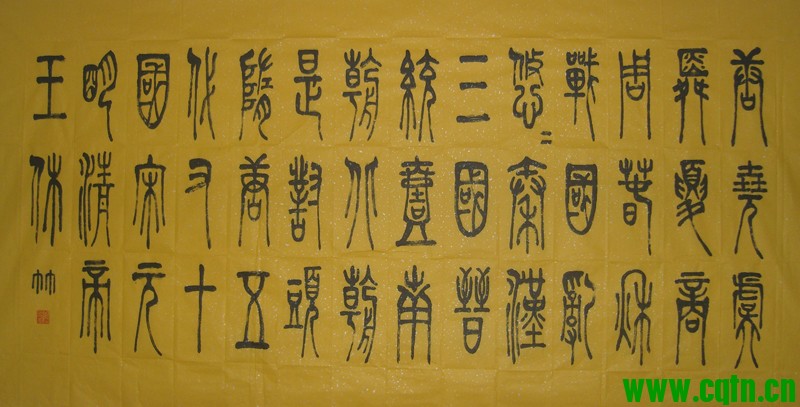 唐堯虞
舜夏商
周春秋
戰國亂
悠〻秦漢
三國晉
統壹南
朝北朝
是對頭
隋唐五
代又十
國宋元
明清帝
王休
www.cqtn.cn